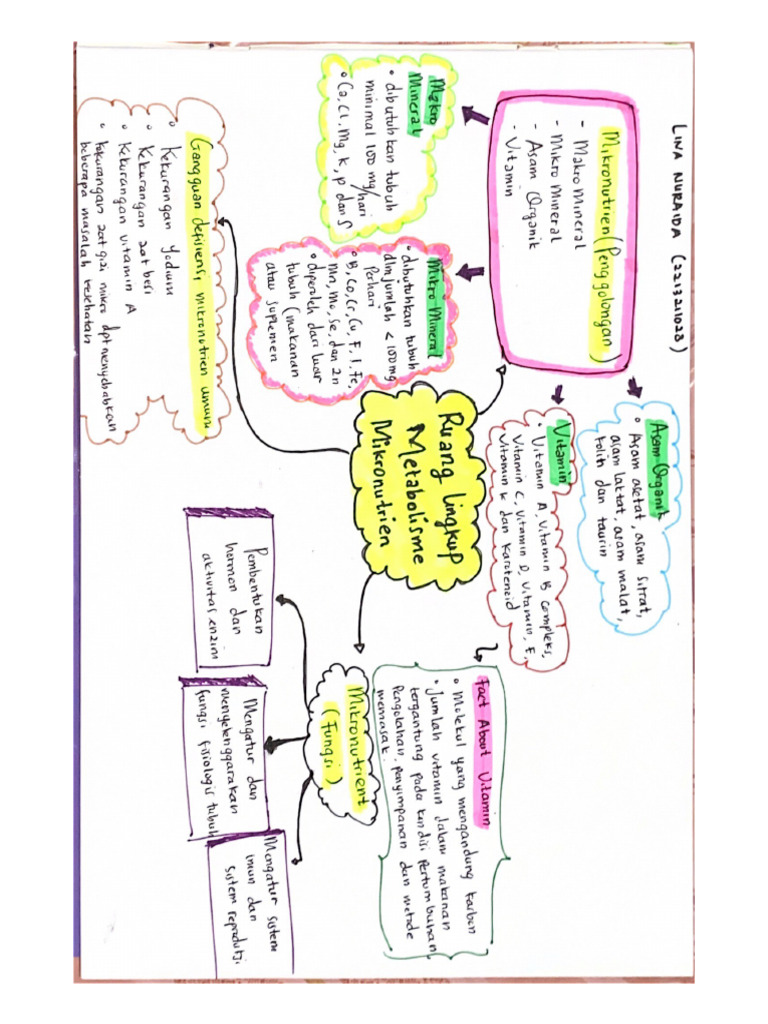 LINA NURAIDA (221321028)
Mikronutrien (Penggolongan)
- Makro Mineral
- Mikro Mineral
- Asam Organik
- Vitamin
Makro
Mineral
• dibutuhkan tubuh
minimal 100 mg/hari
• Ca, Cl, Mg, K, P dan S
Mikro Mineral
• dibutuhkan tubuh
dlm jumlah < 100 mg
Perhari
• B, Co, Cr, Cu, F, I, Fe,
Mn, Mo, Se, dan Zn
• diperoleh dari luar
tubuh (makanan
atau suplemen
Asam Organik
• Asam asetat, asam sitrat,
asam laktat, asam malat,
kolin dan taurin
Vitamin
• Vitamin A, Vitamin B compleks,
Vitamin C, Vitamin D, Vitamin, E,
Vitamin K dan Karotenoid
Ruang lingkup
Metabolisme
Mikronutrien
Fact About Vitamin
• Molekul yang mengandung karbon
• Jumlah vitamin dalam makanan
tergantung pada kondisi pertumbuhan
Pengolahan, penyimpanan dan metode
memasak.
Mikronutrient
(Fungsi)
Pembentukan
hormon dan
aktivitas enzim
Mengatur dan
menyelenggarakan
fungsi fisiologis tubuh
Mengatur sistem
imun dan
sistem reproduksi
Gangguan defisiensi mikronutrien umum
• Kekurangan Yodium
• Kekurangan zat besi
• Kekurangan vitamin A
• Kekurangan zat gizi mikro dpt menyebabkan
beberapa masalah kesehatan